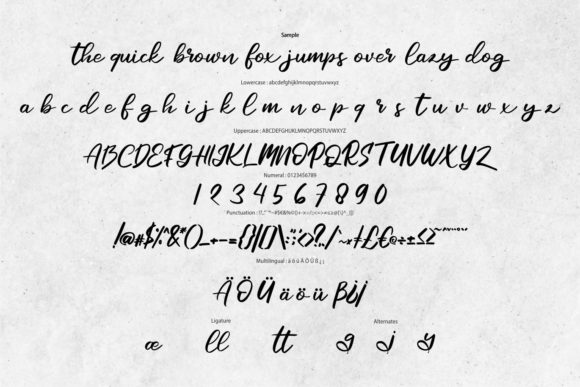 Sample
the quick brown fox jumps over lazy dog
Lowercase : abcdefghijklmnopqrstuvwxyz
a b c d e f g h i j k l m n o p q r s t u v w x y z
Uppercase : ABCDEFGHIJKLMNOPQRSTUVWXYZ
ABCDEFGHIJKLMNOPQRSTUVWXYZ
Numeral : 0123456789
1 2 3 4 5 6 7 8 9 0
Punctuation :
!@#$%^&*()_+-={}|[]\:;'<>?,./
Multilingual : ä ö ü Ä Ö Ü ß ¡ ¿
Ä Ö Ü ä ö ü ß
Ligature Alternates
æ ll tt g j y